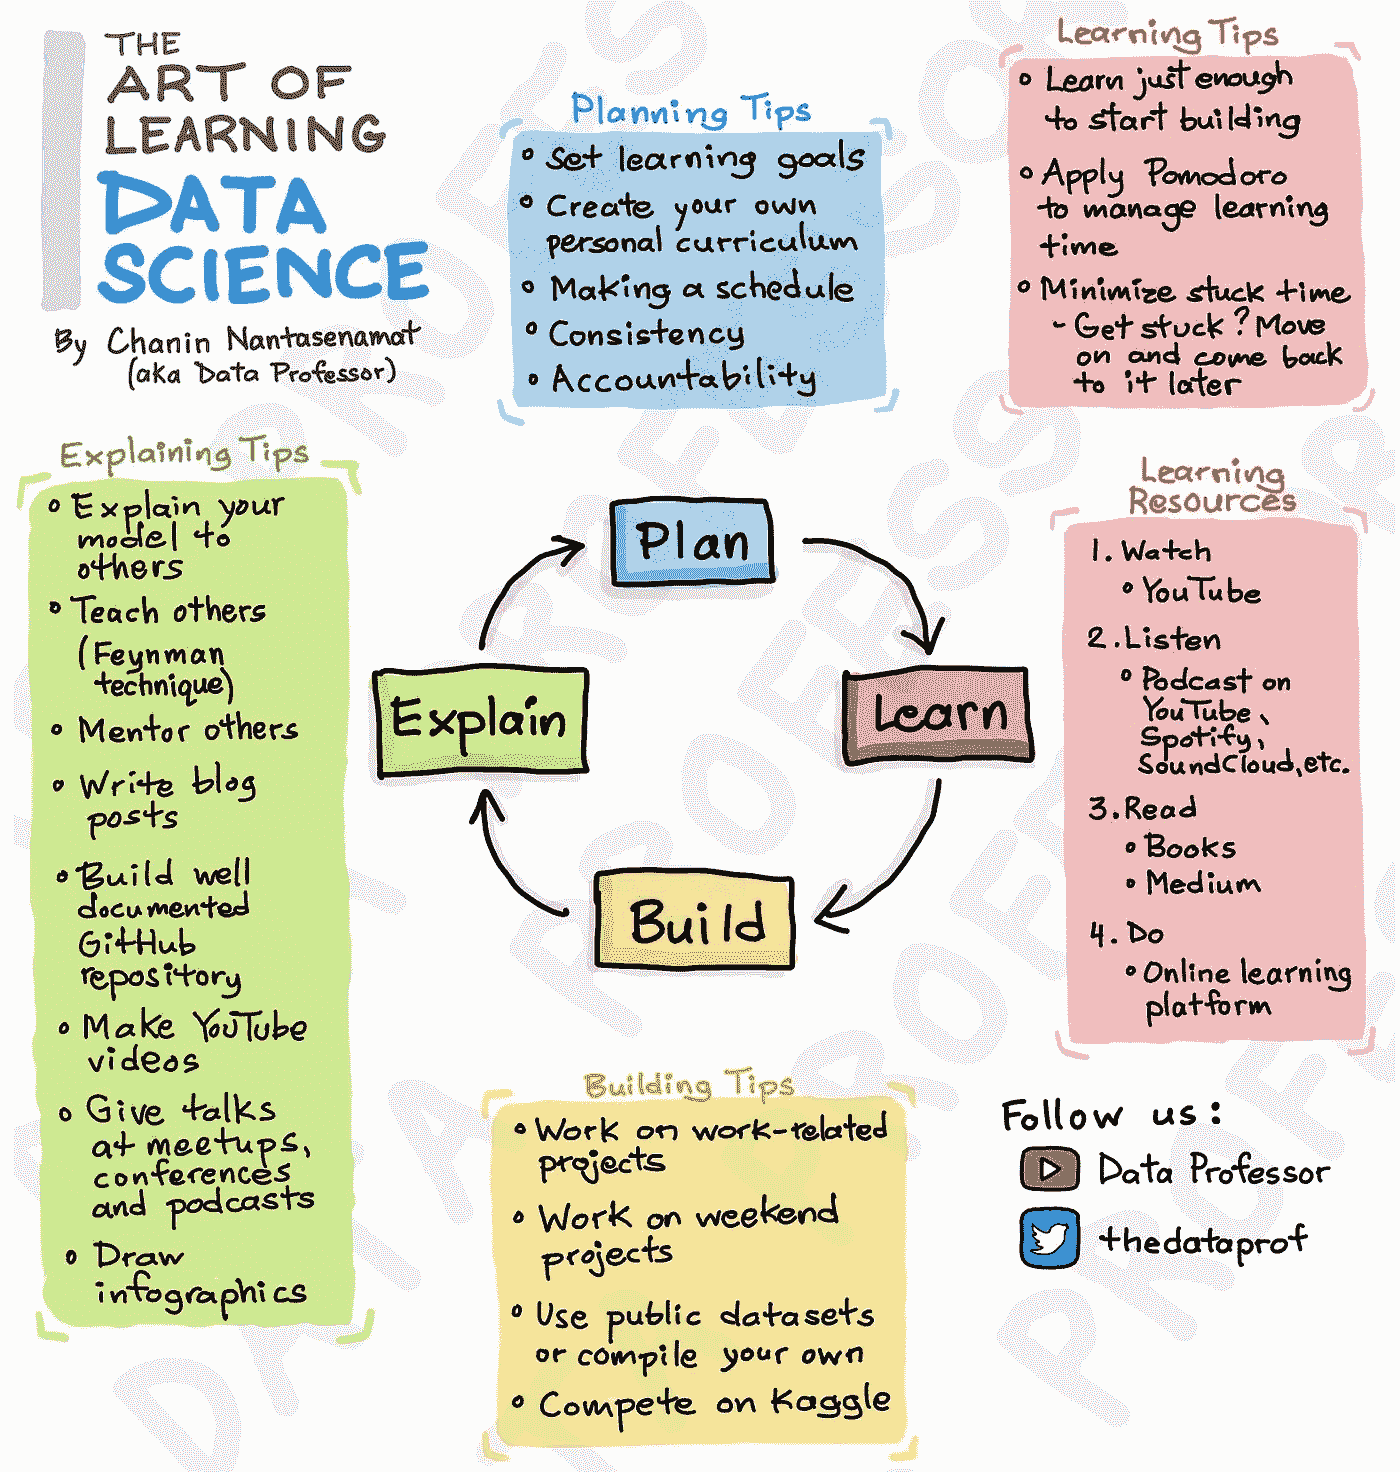 THE
ART OF
LEARNING
DATA
SCIENCE
By Chanin Nantasenamat
(aka Data Professor)
Planning Tips
• Set learning goals
• Create your own
personal curriculum
• Making a schedule
• Consistency
• Accountability
Learning Tips
• Learn just enough
to start building
• Apply Pomodoro
to manage learning
time
• Minimize stuck time
- Get stuck? Move
on and come back
to it later
Explaining Tips
• Explain your
model to
others
• Teach others
(Feynman
technique)
• Mentor others
• Write blog
posts
• Build well
documented
GitHub
repository
• Make YouTube
videos
• Give talks
at meetups,
conferences
and podcasts
• Draw
infographics
Plan
Learn
Build
Explain
Learning
Resources
1. Watch
• YouTube
2. Listen
• Podcast on
YouTube,
Spotify,
SoundCloud, etc.
3. Read
• Books
• Medium
4. Do
• Online learning
platform
Building Tips
• Work on work-related
projects
• Work on weekend
projects
• Use public datasets
or compile your own
• Compete on Kaggle
Follow us:
Data Professor
thedataprof
DATA PROFESSOR